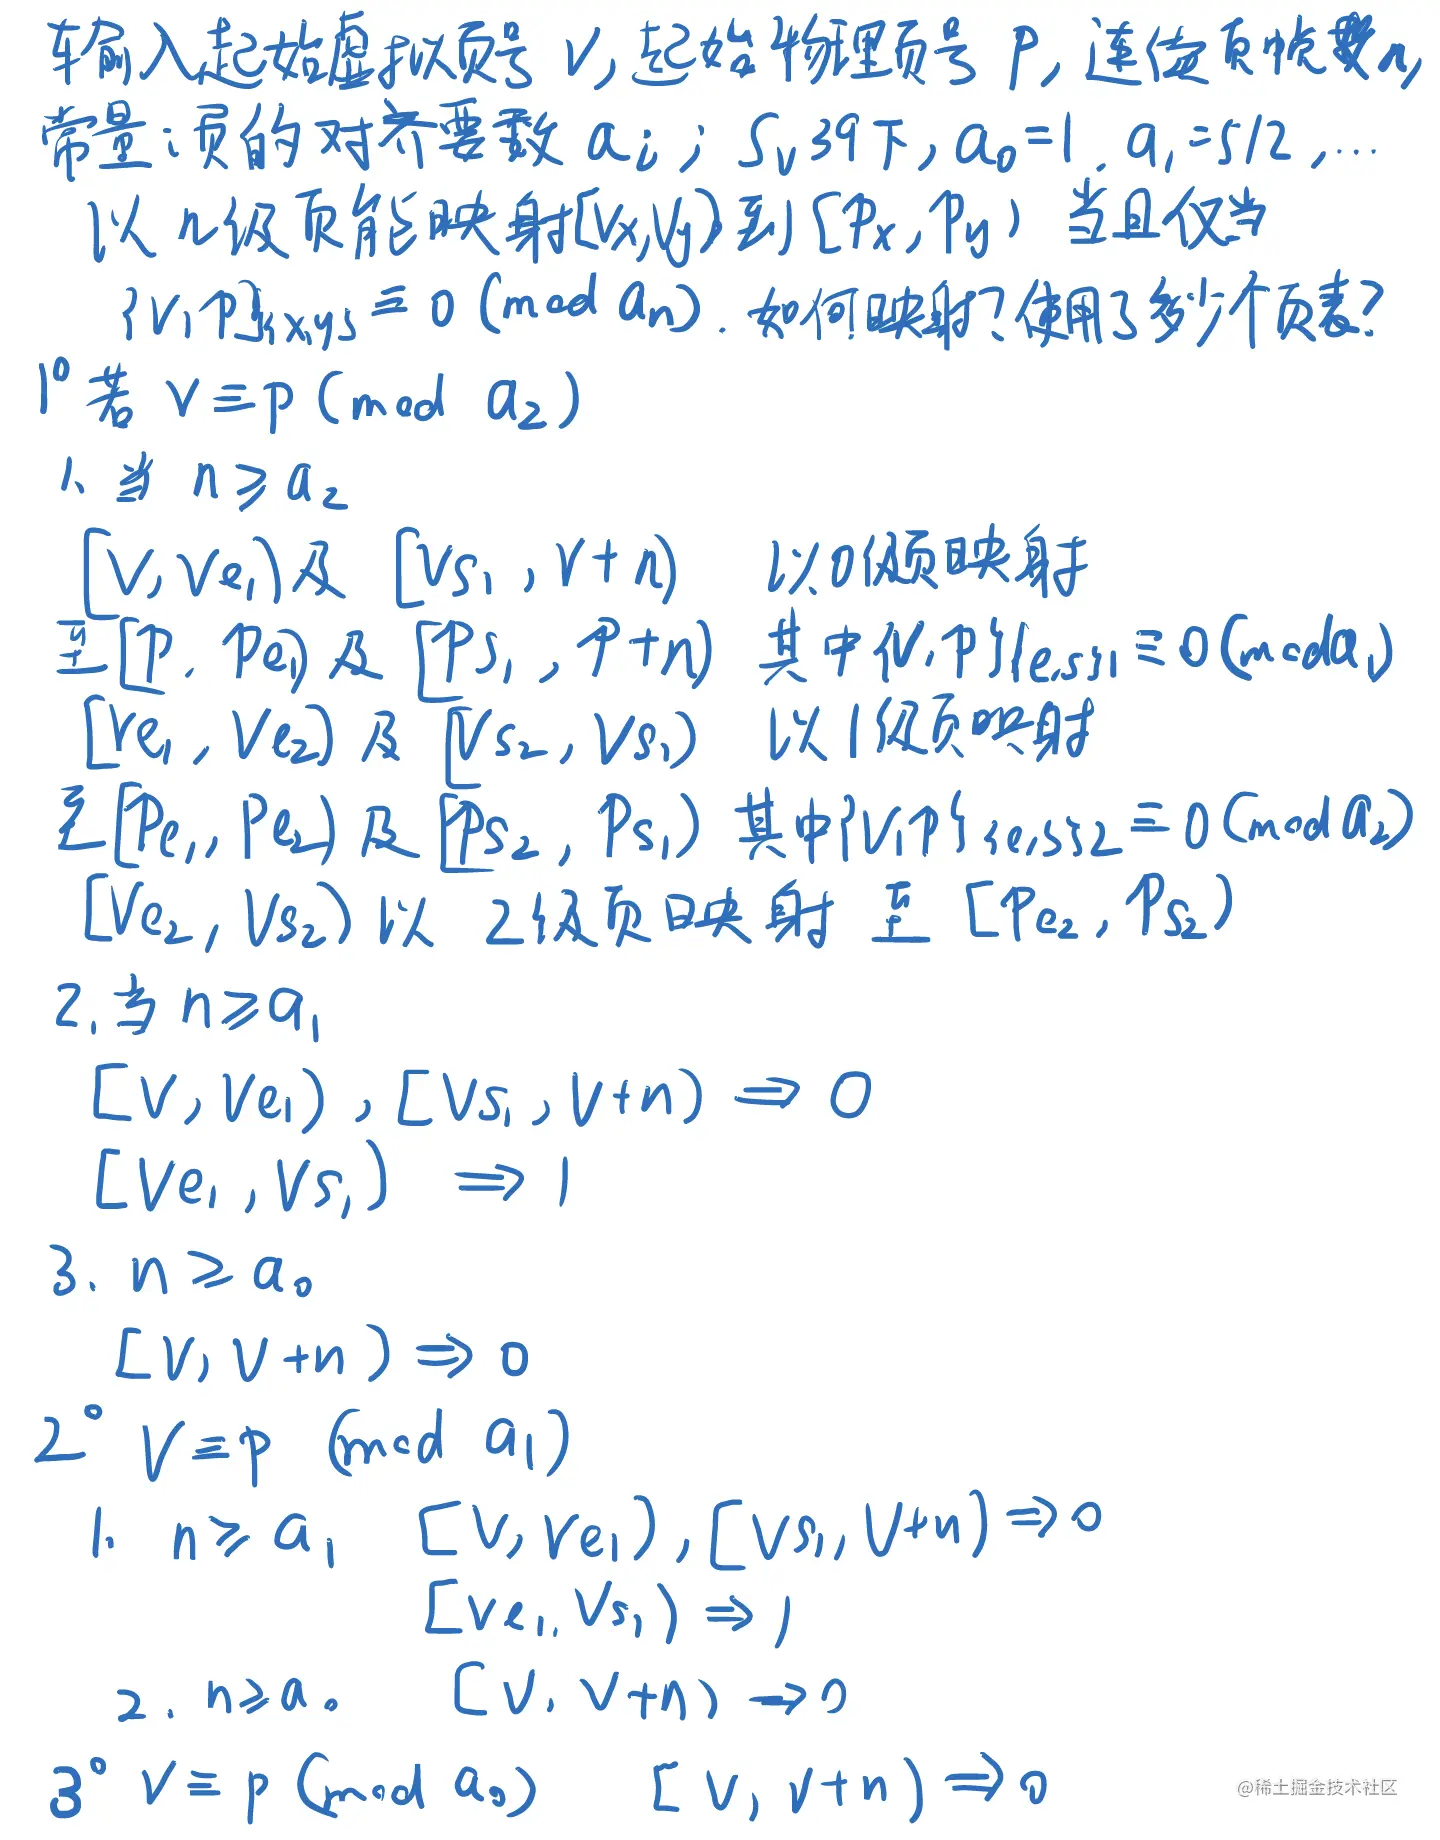 输入起始虚拟页号 V, 起始物理页号 P, 连续页帧数n,
常量:页的对齐要数 ai; Sv39下, a₀=1, a₁=512, …
以 n级页能映射[Vx,Vy)到[Px,Py) 当且仅当
{V,P}{x,y} ≡ 0 (mod an). 如何映射?使用了多少个页表?
1° 若 V≡P (mod a₂)
1. 当 n⩾a₂
[V, Ve₁)及 [Vs₁, V+n) 以0级页映射
至[P, Pe₁)及[Ps₁, P+n) 其中{V,P}{e,s}1≡0(mod a₁)
[Ve₁, Ve₂)及 [Vs₂, Vs₁) 以1级页映射
至[Pe₁, Pe₂)及[Ps₂, Ps₁) 其中{V,P}{e,s}2≡0(mod a₂)
[Ve₂, Vs₂)以 2级页映射 至 [Pe₂, Ps₂)
2. 当 n⩾a₁
[V, Ve₁), [Vs₁, V+n) ⇒ 0
[Ve₁, Vs₁) ⇒ 1
3. n⩾a₀
[V, V+n) ⇒ 0
2° V≡P (mod a₁)
1. n⩾a₁ [V, Ve₁), [Vs₁, V+n) ⇒ 0
[Ve₁, Vs₁) ⇒ 1
2. n⩾a₀ [V, V+n) → 0
3° V≡P (mod a₀) [V, V+n) ⇒ 0
@稀土掘金技术社区